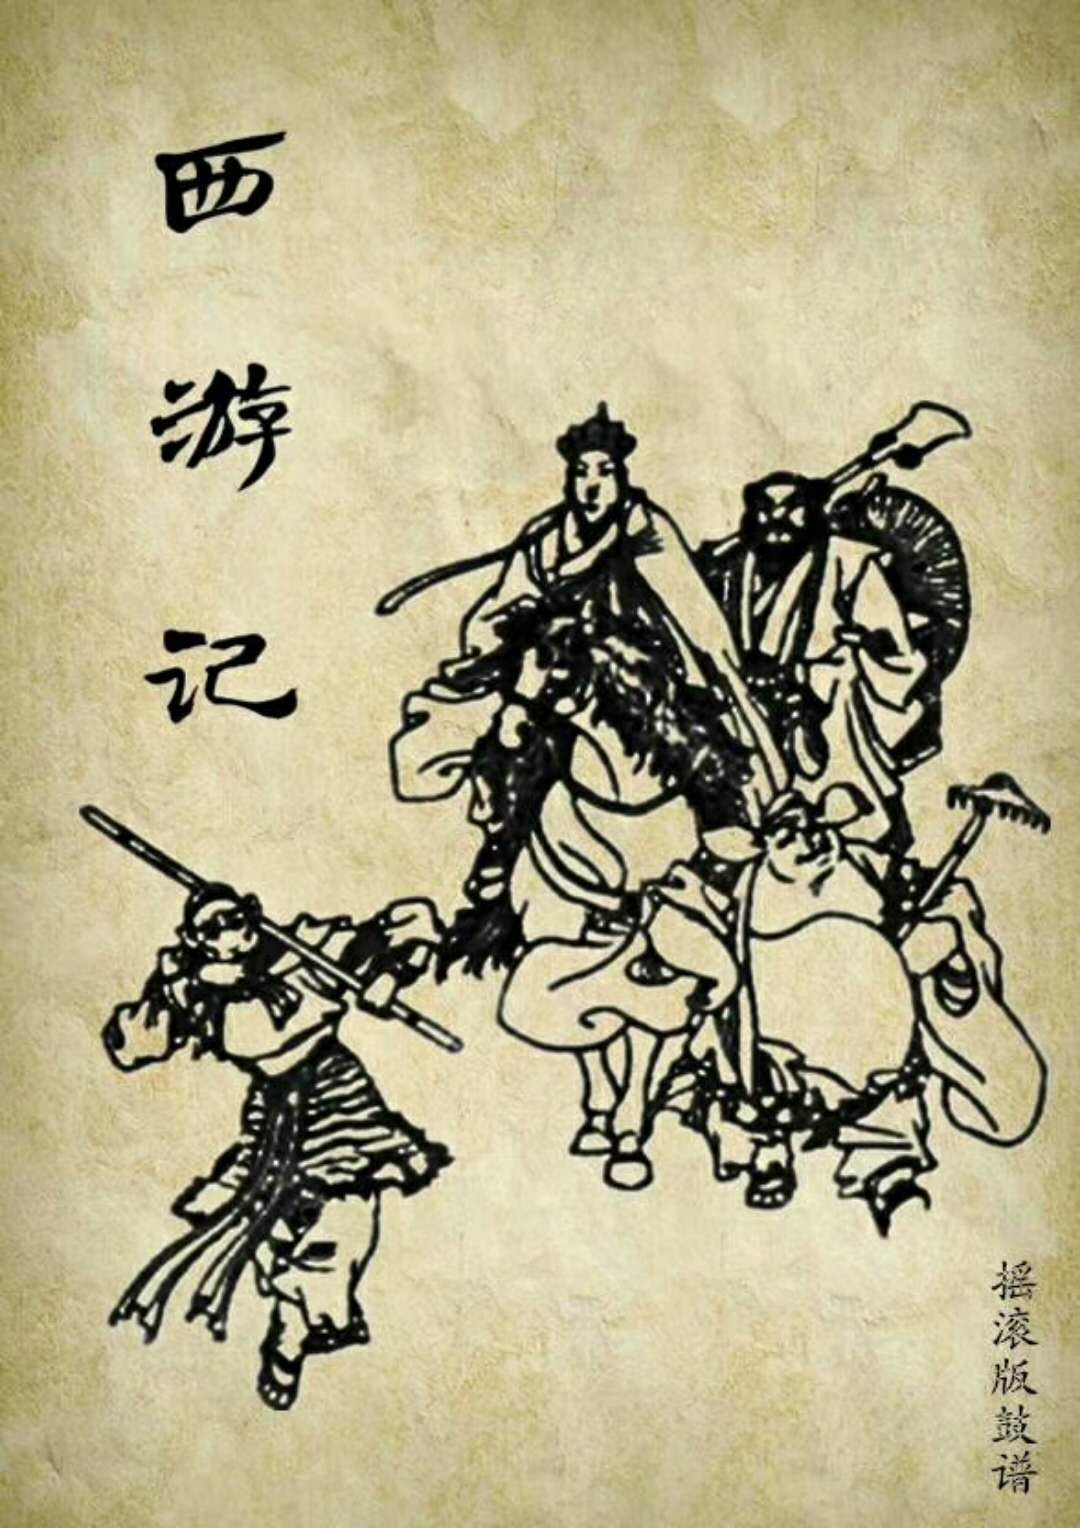 西游记
摇滚版鼓谱